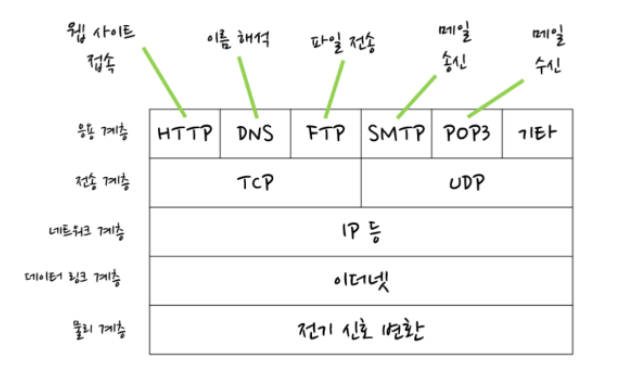 웹 사이트
접속
이름 해석
파일 전송
메일
송신
메일
수신
응용 계층 HTTP DNS FTP SMTP POP3 기타
전송 계층 TCP UDP
네트워크 계층 IP 등
데이터 링크 계층 이더넷
물리 계층 전기 신호 변환